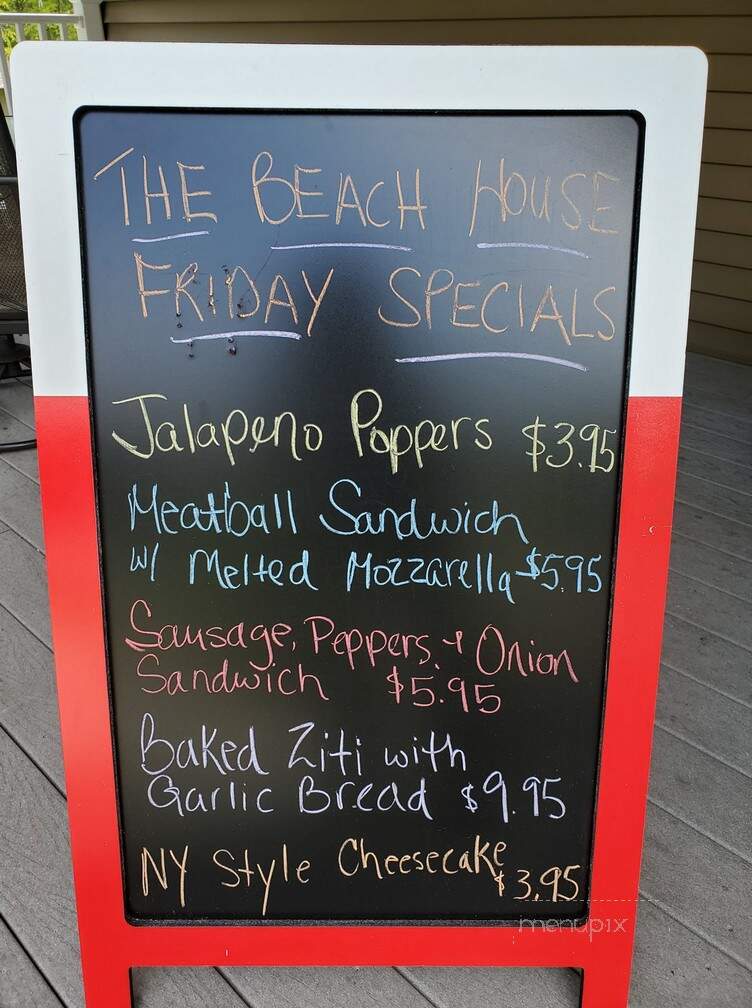 THE BEACH HOUSE
FRIDAY SPECIALS
Jalapeno Poppers $3.95
Meatball Sandwich
w/ Melted Mozzarella $5.95
Sausage, Peppers, + Onion
Sandwich $5.95
Baked Ziti with
Garlic Bread $9.95
NY Style Cheesecake
$3.95
menupix